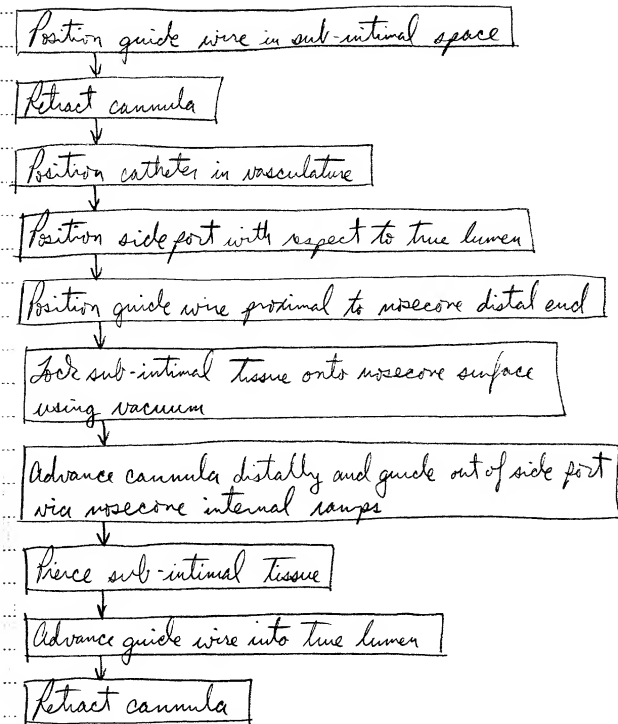 Position guide wire in sub-intimal space
Retract cannula
Position catheter in vasculature
Position side port with respect to true lumen
Position guide wire proximal to nosecone distal end
Lock sub-intimal tissue onto nosecone surface
using vacuum
Advance cannula distally and guide out of side port
via nosecone internal ramps
Pierce sub-intimal tissue
Advance guide wire into true lumen
Retract cannula